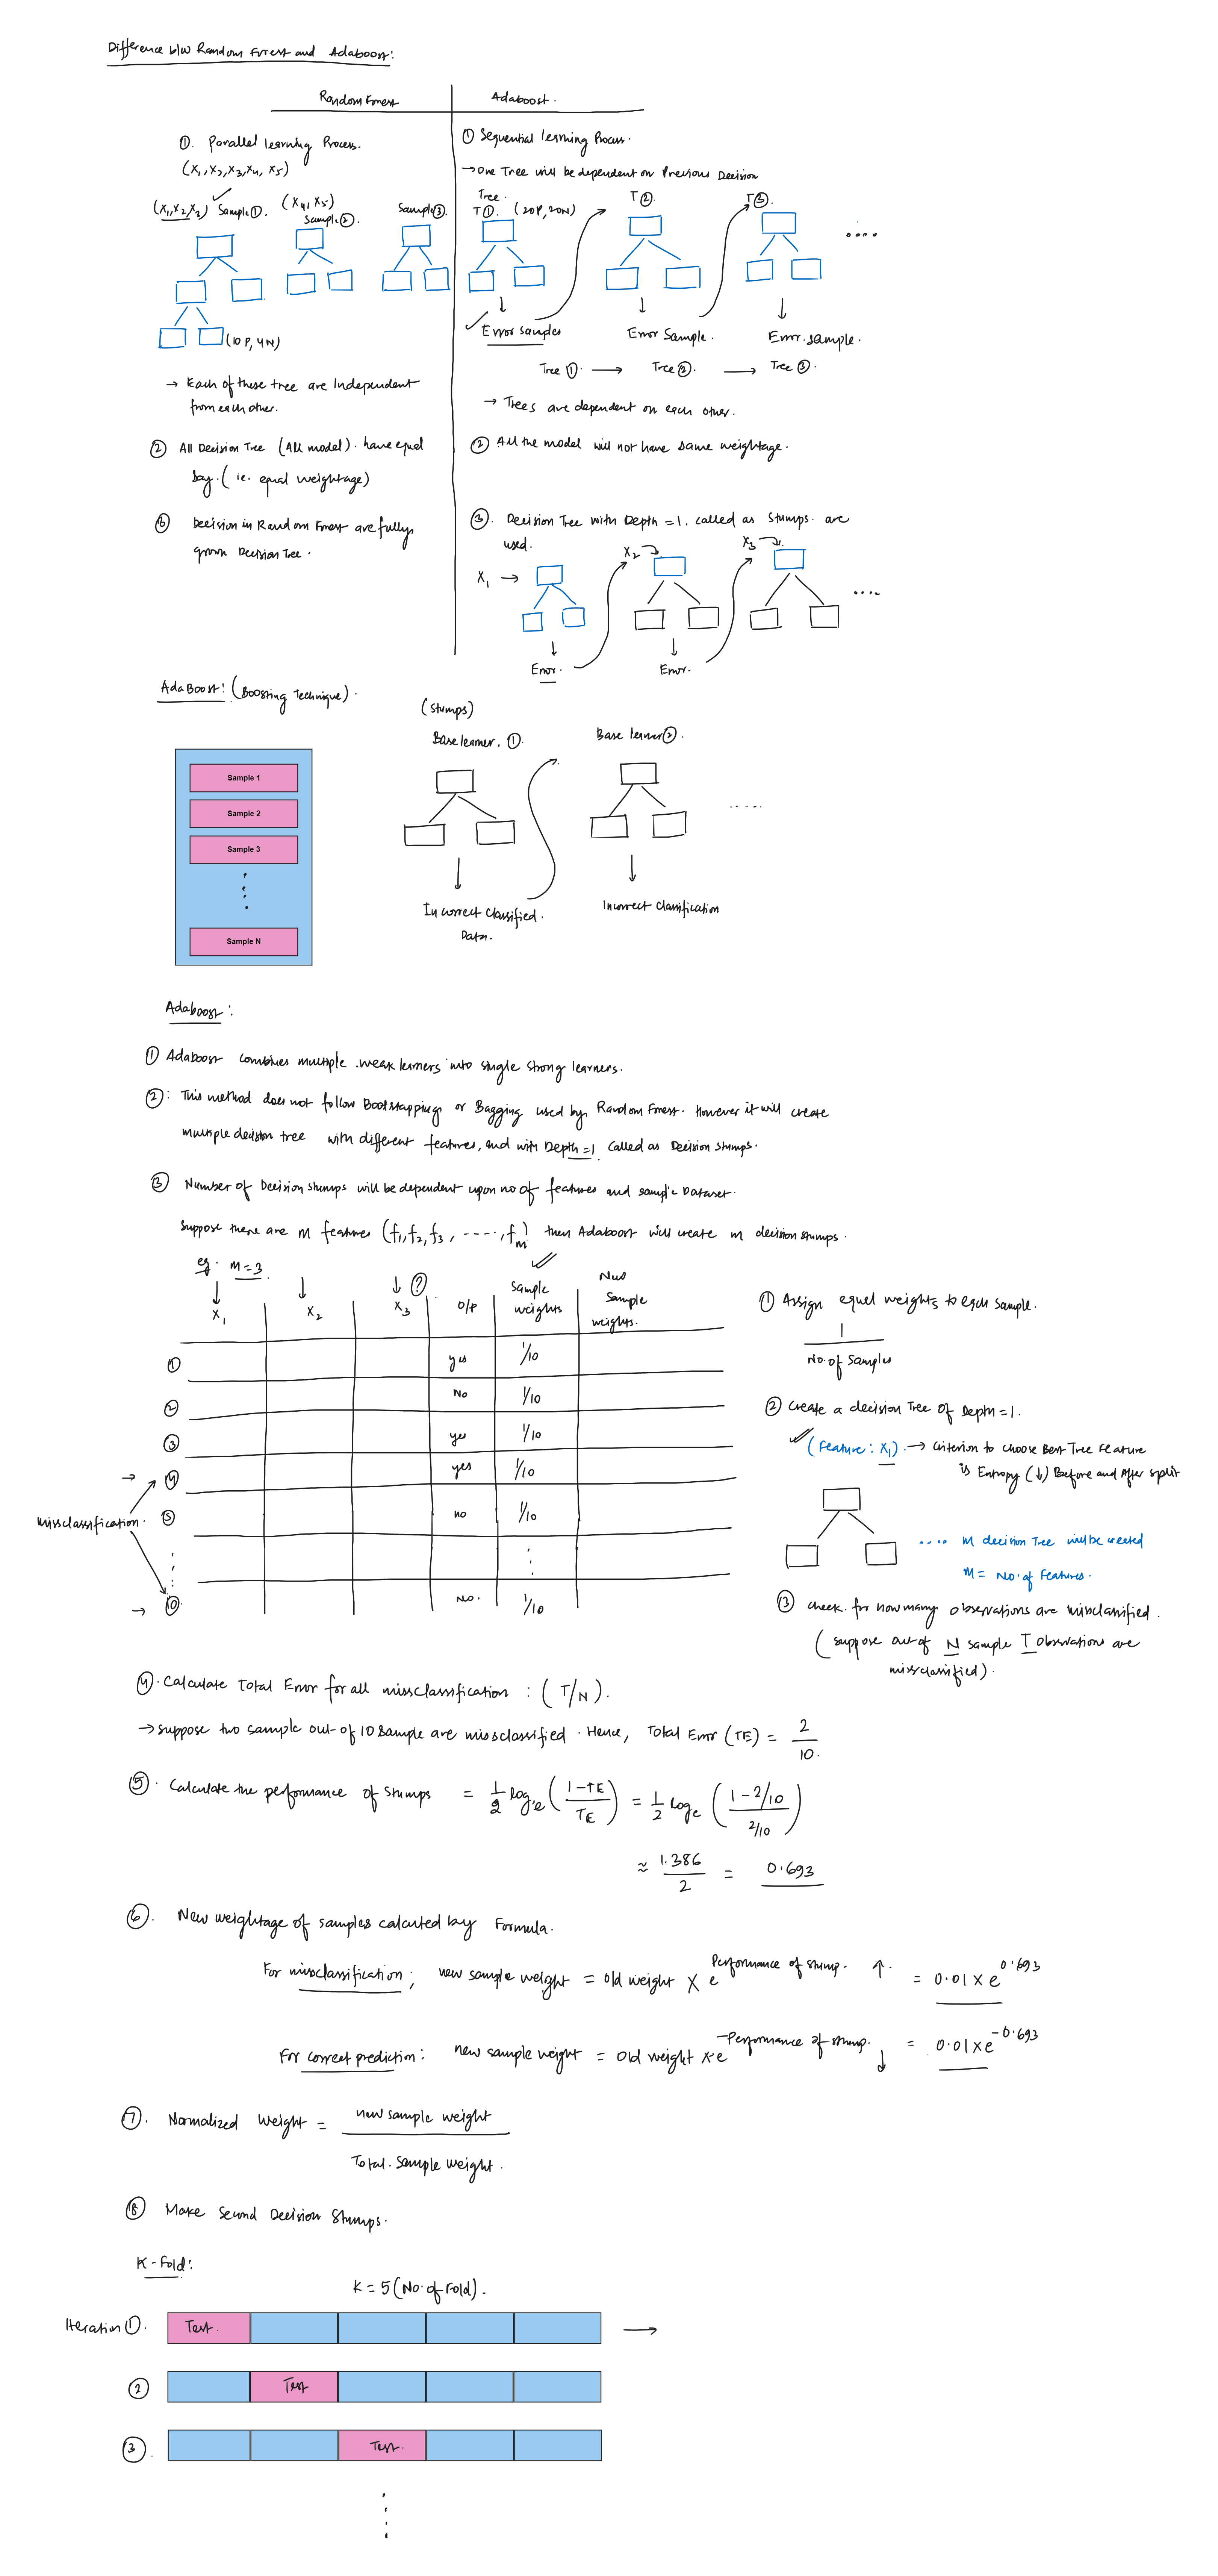 Difference b/w Random Forest and Adaboost:
Random Forest
Adaboost.
① Parallel learning Process.
(x₁, x₂, x₃, x₄, x₅)
(x₁, x₂ x₃) Sample ①.
(x₄, x₅)
Sample ②.
Sample ③.
(10 P, 4 N)
→ Each of these tree are Independent
from each other.
② All Decision Tree (All model). have equal
Say. (ie. equal weightage)
③ Decision in Random Forest are fully
grown Decision Tree.
① Sequential learning Process.
→ One Tree will be dependent on Previous Decision
Tree.
T ①. (20P, 20N)
T ②.
T ③.
....
Error samples
Error Sample.
Error. sample.
Tree ①. → Tree ②. → Tree ③.
→ Trees are dependent on each other.
② All the model will not have same weightage.
③. Decision Tree with Depth = 1. called as Stumps. are
used.
x₁ →
x₂
x₃
....
Error.
Error.
AdaBoost: (Boosting Technique).
Sample 1
Sample 2
Sample 3
Sample N
(Stumps)
Base learner. ①.
Base lerner ②.
.....
In correct Classified.
Data.
Incorrect Classification
Adaboost:
① Adaboost combines multiple weak lerners into single strong learners.
②: This method does not follow Bootstapping or Bagging used by Random Forest. However it will create
multiple decision tree with different features, and with Depth = 1 called as Decision Stumps.
③ Number of Decision Stumps will be dependent upon no of features and sample Dataset.
Suppose there are m features (f₁, f₂, f₃, ----, fₘ) then Adaboost will create m decision stumps.
eg. m = 3.
x₁
x₂
?
x₃
O/P
Sample
weights
New
Sample
weights.
① yes 1/10
② No 1/10
③ yes 1/10
→ ④ yes 1/10
missclassification. ⑤ no 1/10
→ ⑩ No. 1/10
① Assign equal weights to each sample.
1
No. of Samples
② Create a decision Tree of Depth = 1.
(Feature: x₁). → Criterion to choose Best Tree Feature
is Entropy (↓) Before and After split
.... M decision Tree will be created
M = No. of Features.
③ Check for how many observations are missclassified.
(Suppose out of N sample T observations are
missclassified).
④. Calculate Total Error for all missclassification : (T/N).
→ Suppose two sample out of 10 sample are missclassified. Hence, Total Error (TE) = 2/10.
⑤. Calculate the performance of Stumps = 1/2 logₑ (1-TE / TE) = 1/2 logₑ (1 - 2/10 / 2/10)
≈ 1.386/2 = 0.693
⑥. New weightage of samples calcuted by Formula.
For missclassification; new sample weight = old weight x e^Performance of stump. ↑. = 0.01 x e^0.693
For correct prediction: new sample weight = Old weight x e^-Performance of stump. ↓ = 0.01 x e^-0.693
⑦. Normalized Weight = new sample weight
Total. Sample weight.
⑧ Make Second Decision Stumps.
K-Fold:
K = 5 (No. of Fold).
Iteration ①. Test.
② Test
③. Test.